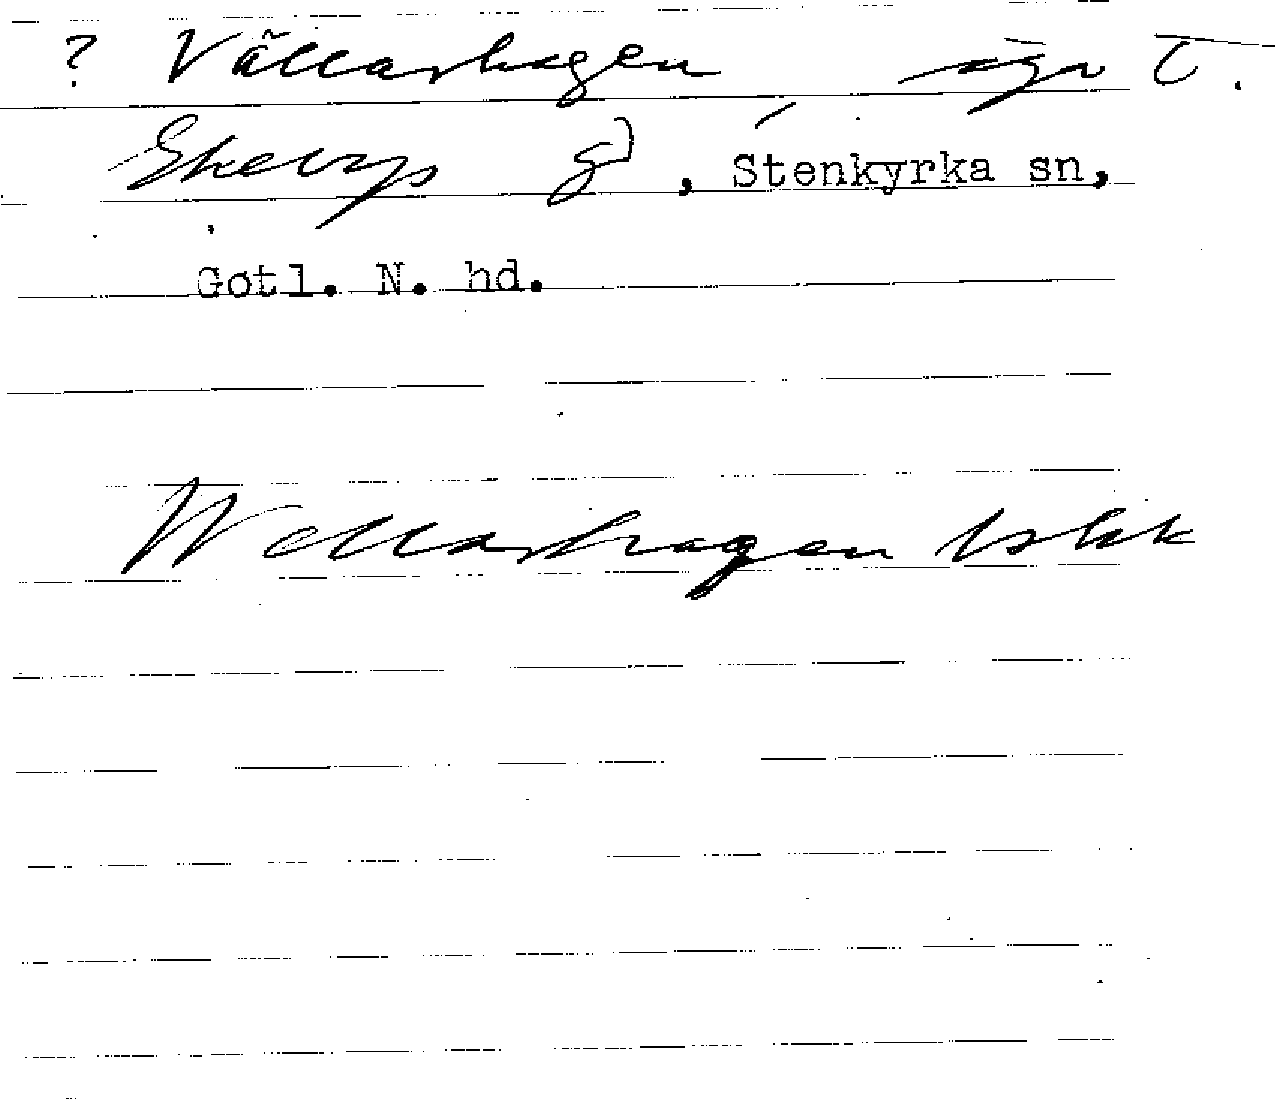 ? Vällarhagen, äga t.
Ekerys gd, Stenkyrka sn,
Gotl. N. hd.
Wellarhagen lskk